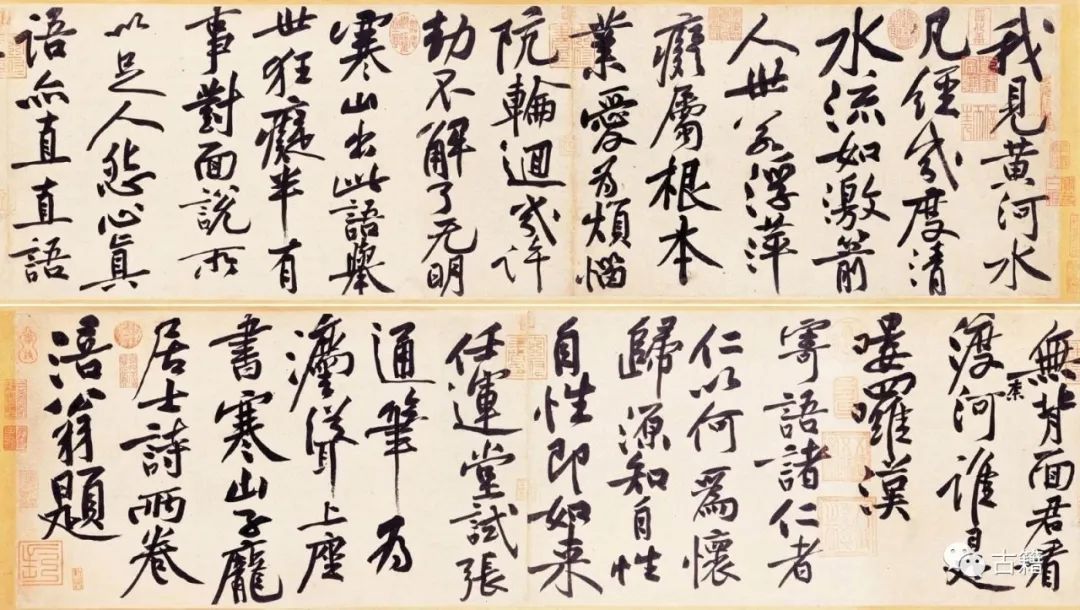 我見黃河水
凡經幾度清
水流如激箭
人世若浮萍
癡屬根本
業愛為煩惱
阬輪迴幾許
劫不解了无明
寒山出此語舉
世狂癡半有
事對面說所
以足人怨心真
語亦直直語
無背面君看
渡奈河誰是
嘍羅漢
寄語諸仁者
仁以何為懷
歸源知自性
自性即如来
任運堂試張
通筆為
灋聳上座
書寒山子龐
居士詩兩卷
涪翁題
古籍